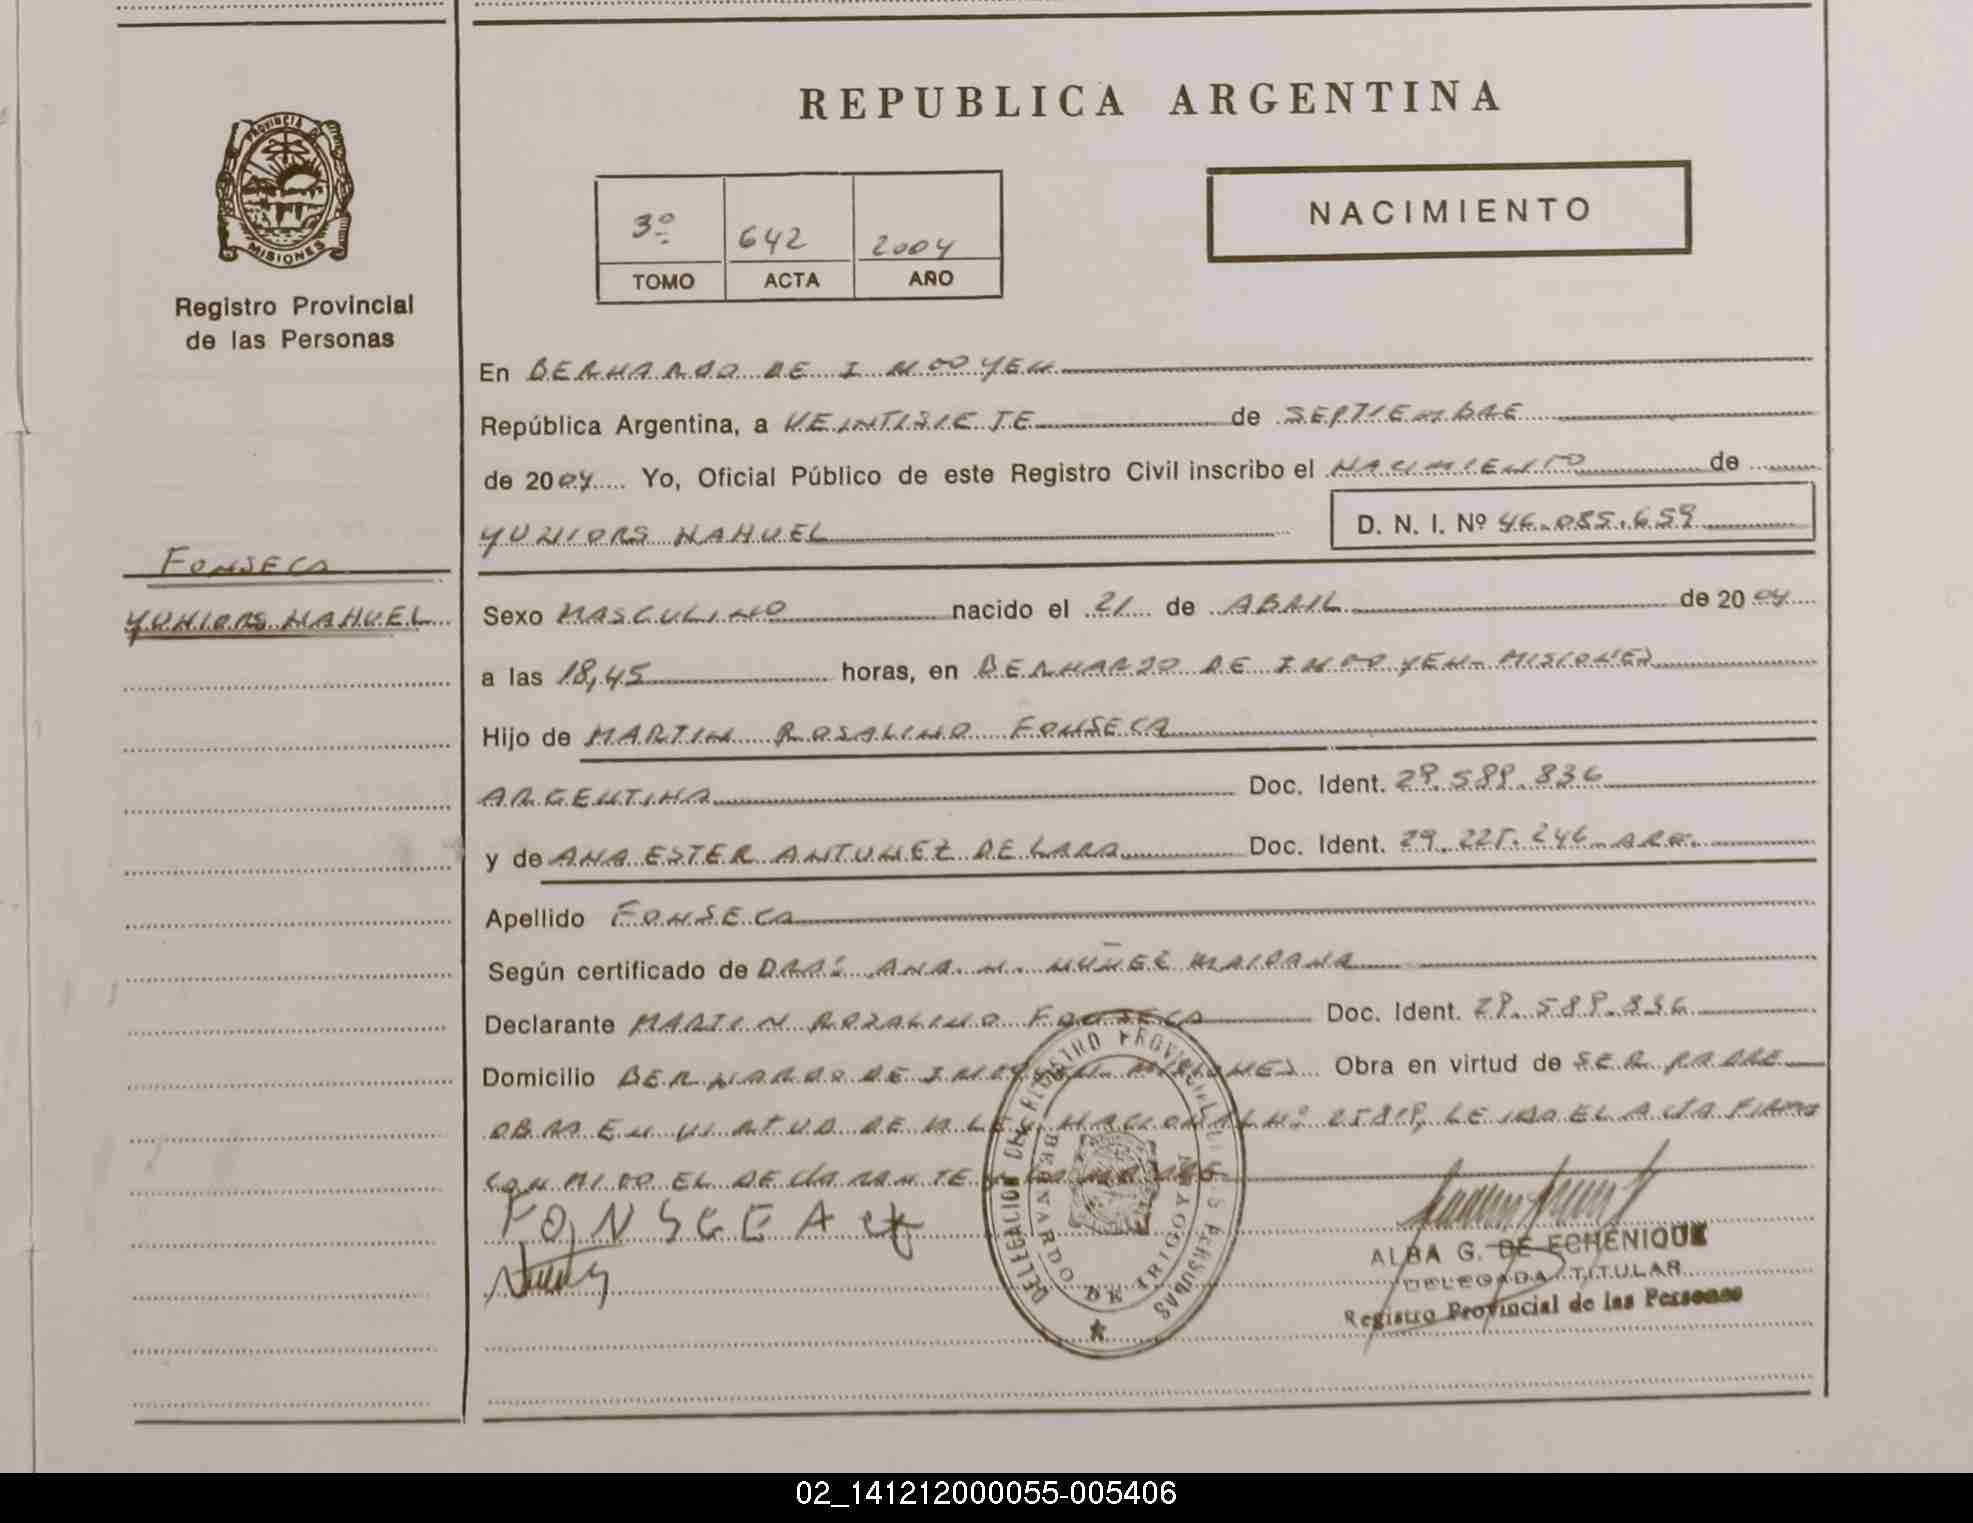 REPUBLICA ARGENTINA
PROVINCIA DE
MISIONES
Registro Provincial
de las Personas
3º 642 2004
TOMO ACTA AÑO
NACIMIENTO
En BERNARDO DE IRIGOYEN
República Argentina, a VEINTISIETE de SEPTIEMBRE
de 2004 Yo, Oficial Público de este Registro Civil inscribo el NACIMIENTO de
YUNIORS NAHUEL D. N. I. Nº 46.085.659
FONSECA
YUNIORS NAHUEL
Sexo MASCULINO nacido el 21 de ABRIL de 2004
a las 18,45 horas, en BERNARDO DE IRIGOYEN - MISIONES
Hijo de MARTIN ROSALINO FONSECA
ARGENTINA Doc. Ident. 29.589.836
y de ANA ESTER ANTUNEZ DE LARA Doc. Ident. 29.225.246 ARG.
Apellido FONSECA
Según certificado de DRA: ANA M. NUÑEZ MAIDANA
Declarante MARTIN ROSALINO FONSECA Doc. Ident. 29.589.836
Domicilio BERNARDO DE IRIGOYEN MISIONES Obra en virtud de SER PADRE
OBRA EN VIRTUD DE LA LEY NACIONAL Nº 25819, LEIDO EL ACTA FIRMA
CONMIGO EL DECLARANTE Y LA MADRE
FONSCEA
DELEGACION DEL REGISTRO PROVINCIAL DE LAS PERSONAS
BERNARDO DE IRIGOYEN
ALBA G. DE ECHENIQUE
DELEGADA TITULAR
Registro Provincial de las Personas
02_141212000055-005406